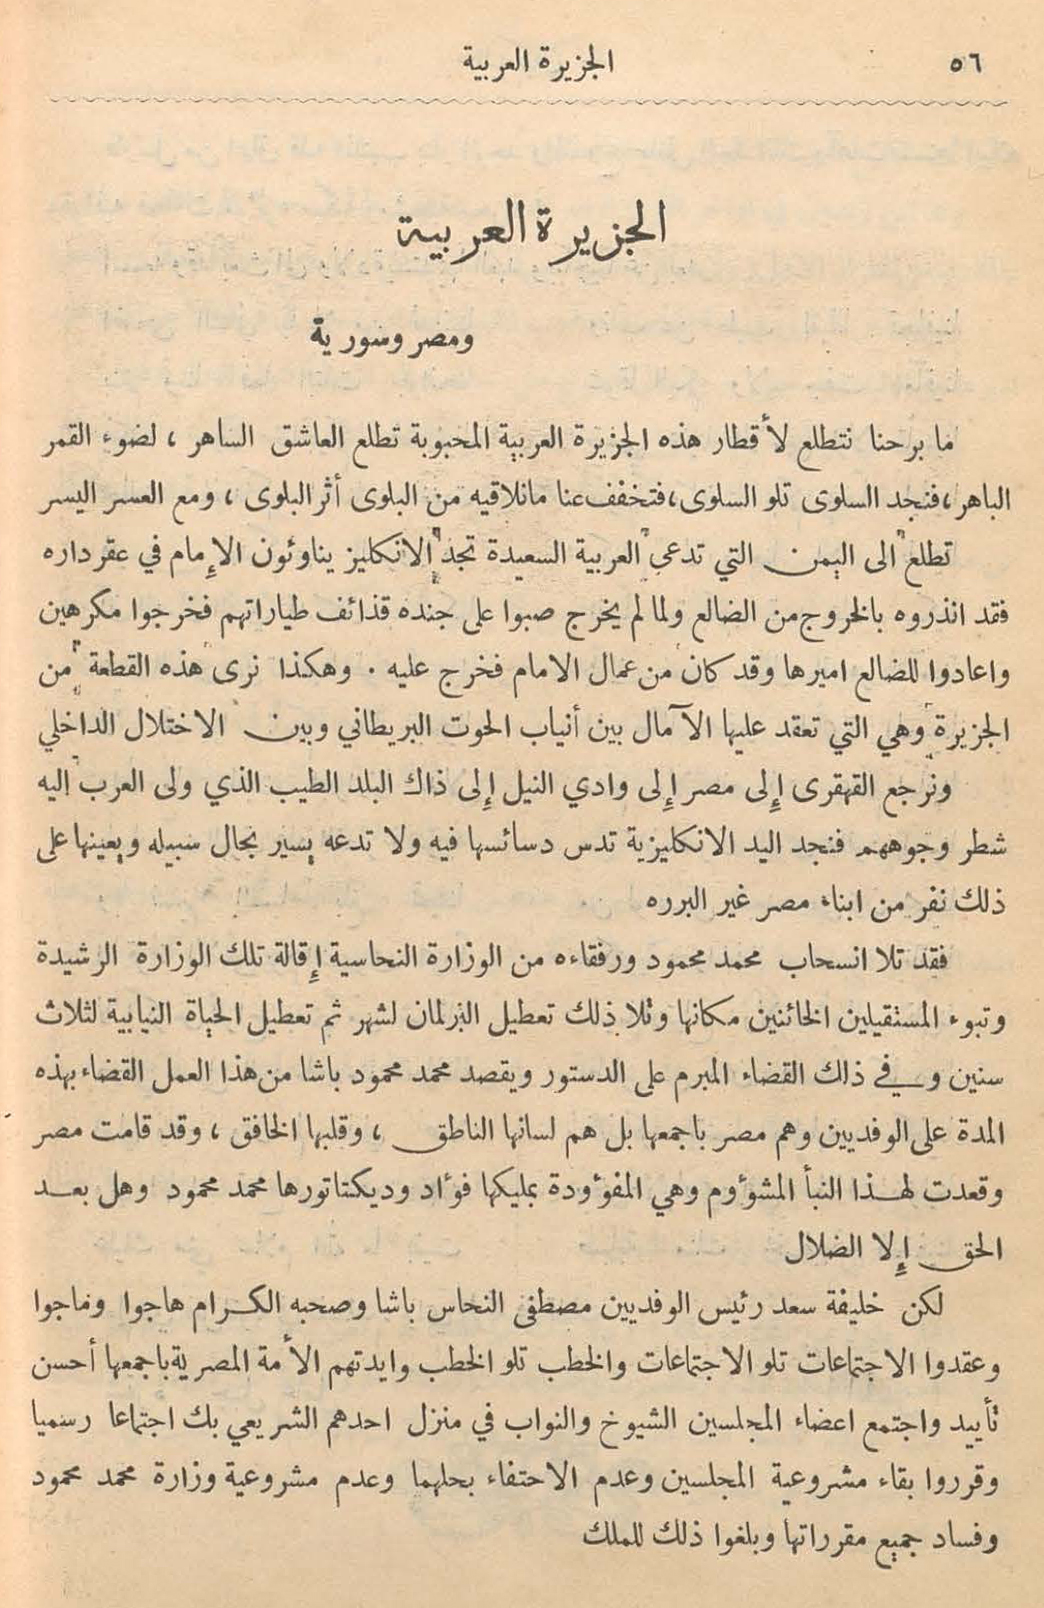 ٥٦
الجزيرة العربية
الجزيرة العربية
ومصر وسورية
ما برحنا نتطلع لأقطار هذه الجزيرة العربية المحبوبة تطلع العاشق الساهر ، لضوء القمر
الباهر ،فنجد السلوى تلو السلوى،فتخفف عنا مانلاقيه من البلوى أثر البلوى ، ومع العسر اليسر
تطلع الى اليمن التي تدعى العربية السعيدة تجد الانكليز يناوئون الإمام في عقر داره
فقد انذروه بالخروج من الضالع ولما لم يخرج صبوا على جنده قذائف طياراتهم فخرجوا مكرهين
واعادوا للضالع اميرها وقد كان من عمال الامام فخرج عليه . وهكذا نرى هذه القطعة من
الجزيرة وهي التي تعقد عليها الآمال بين أنياب الحوت البريطاني وبين الاختلال الداخلي
ونرجع القهقرى إلى مصر إلى وادي النيل إلى ذاك البلد الطيب الذي ولى العرب اليه
شطر وجوههم فنجد اليد الانكليزية تدس دسائسها فيه ولا تدعه يسير بحال سبيله ويعينها على
ذلك نفر من ابناء مصر غير البرره
فقد تلا انسحاب محمد محمود ورفقاءه من الوزارة النحاسية إقالة تلك الوزارة الرشيدة
وتبوء المستقيلين الخائنين مكانها وتلا ذلك تعطيل البرلمان لشهر ثم تعطيل الحياة النيابية لثلاث
سنين وفي ذلك القضاء المبرم على الدستور ويقصد محمد محمود باشا من هذا العمل القضاء بهذه
المدة على الوفديين وهم مصر باجمعها بل هم لسانها الناطق ، وقلبها الخافق ، وقد قامت مصر
وقعدت لهذا النبأ المشؤوم وهي المفؤودة بمليكها فؤاد وديكتاتورها محمد محمود وهل بعد
الحق إلا الضلال
لكن خليفة سعد رئيس الوفديين مصطفى النحاس باشا وصحبه الكرام هاجوا وماجوا
وعقدوا الاجتماعات تلو الاجتماعات والخطب تلو الخطب وايدتهم الأمة المصرية باجمعها أحسن
تأييد واجتمع اعضاء المجلسين الشيوخ والنواب في منزل احدهم الشريعي بك اجتماعا رسميا
وقرروا بقاء مشروعية المجلسين وعدم الاحتفاء بحلهما وعدم مشروعية وزارة محمد محمود
وفساد جميع مقرراتها وبلغوا ذلك للملك